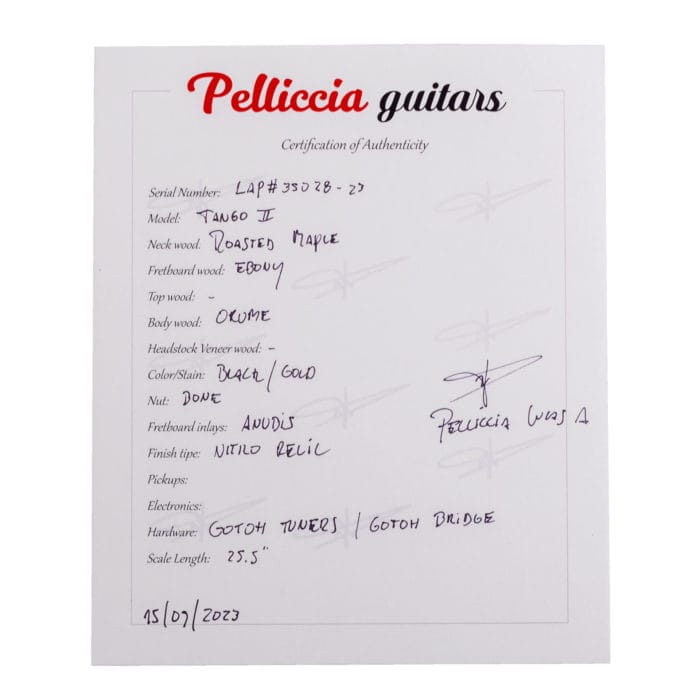 Pelliccia guitars
Certification of Authenticity
Serial Number: LAP#35028-23
Model: TANGO II
Neck wood. ROASTED MAPLE
Fretboard wood: EBONY
Top wood: -
Body wood: OKUME
Headstock Veneer wood: -
Color/Stain: BLACK / GOLD
Nut: BONE
Fretboard inlays:
Finish tipe: NITRO RELIC
Pickups:
Electronics:
Hardware: GOTOH TUNERS / GOTOH BRIDGE
Scale Length: 25.5"
PELLICCIA LUCAS A
15/09/2023